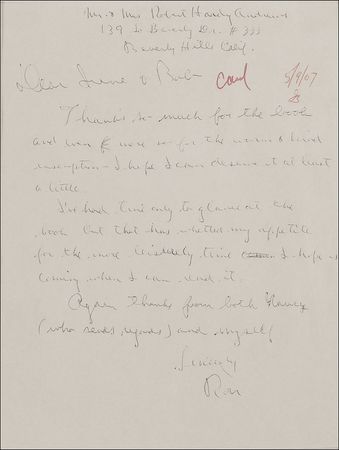 Mr. & Mrs. Robert Hardy Andrews
139 So Beverly Dr. # 333
Beverly Hills Calif.
Dear Irene & Bob—
card
5/9/07
Thanks so much for the book
and even more so for the warm & kind
inscription — I hope I can deserve it at least
a little.
I've had time only to glance at the
book but that has whetted my appetite
for the more leisurely time I hope is
coming when I can read it.
Again thanks from both Nancy
(who sends regards) and myself
Sincerely
Ron